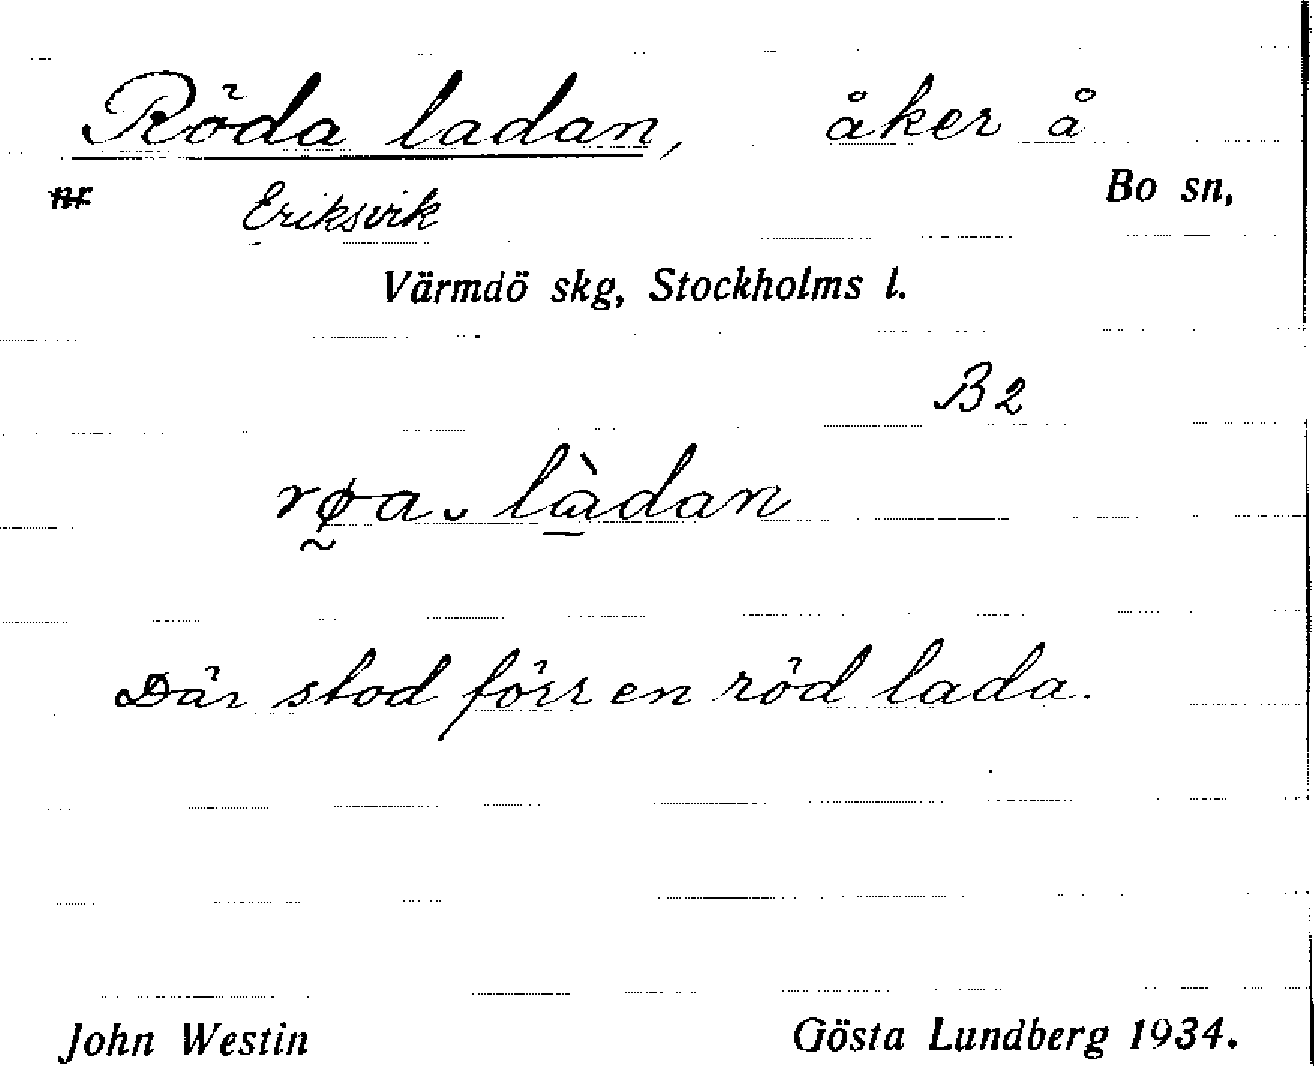 Röda ladan, åker å
Eriksvik Bo sn,
Värmdö skg, Stockholms l.
B2
Där stod förr en röd lada.
John Westin Gösta Lundberg 1934.